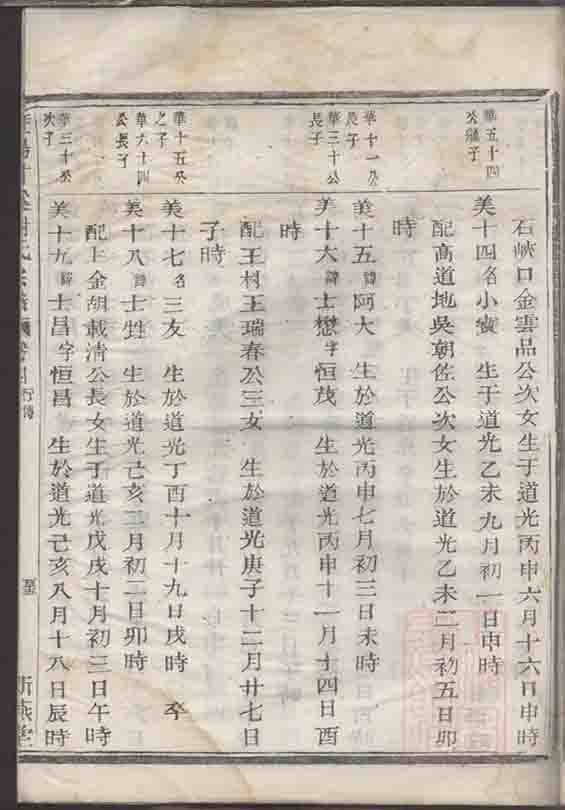 石峽口金雲品公次女生于道光丙申六月十六日申時
華五十四
公繼子
美十四名小寅 生于道光乙未九月初一日申時
配高道地吳朝佐公次女生於道光乙未二月初五日卯
時
華十一公
長子
美十五諱阿大 生於道光丙申七月初三日未時
華三十公
長子
美十六諱士懋字恒茂 生於道光丙申十一月十四日酉
時
配王村王瑞春公三女 生於道光庚子十二月廿七日
子時
華十五公
之子
美十七名三友 生於道光丁酉十月十九日戌時 卒
華六十四
公長子
美十八諱士甡 生於道光己亥二月初二日卯時
配上金胡載清公長女生于道光戊戌十月初三日午時
華三十公
次子
美十九諱士昌字恒昌 生於道光己亥八月十八日辰時
氏宗譜
行傳